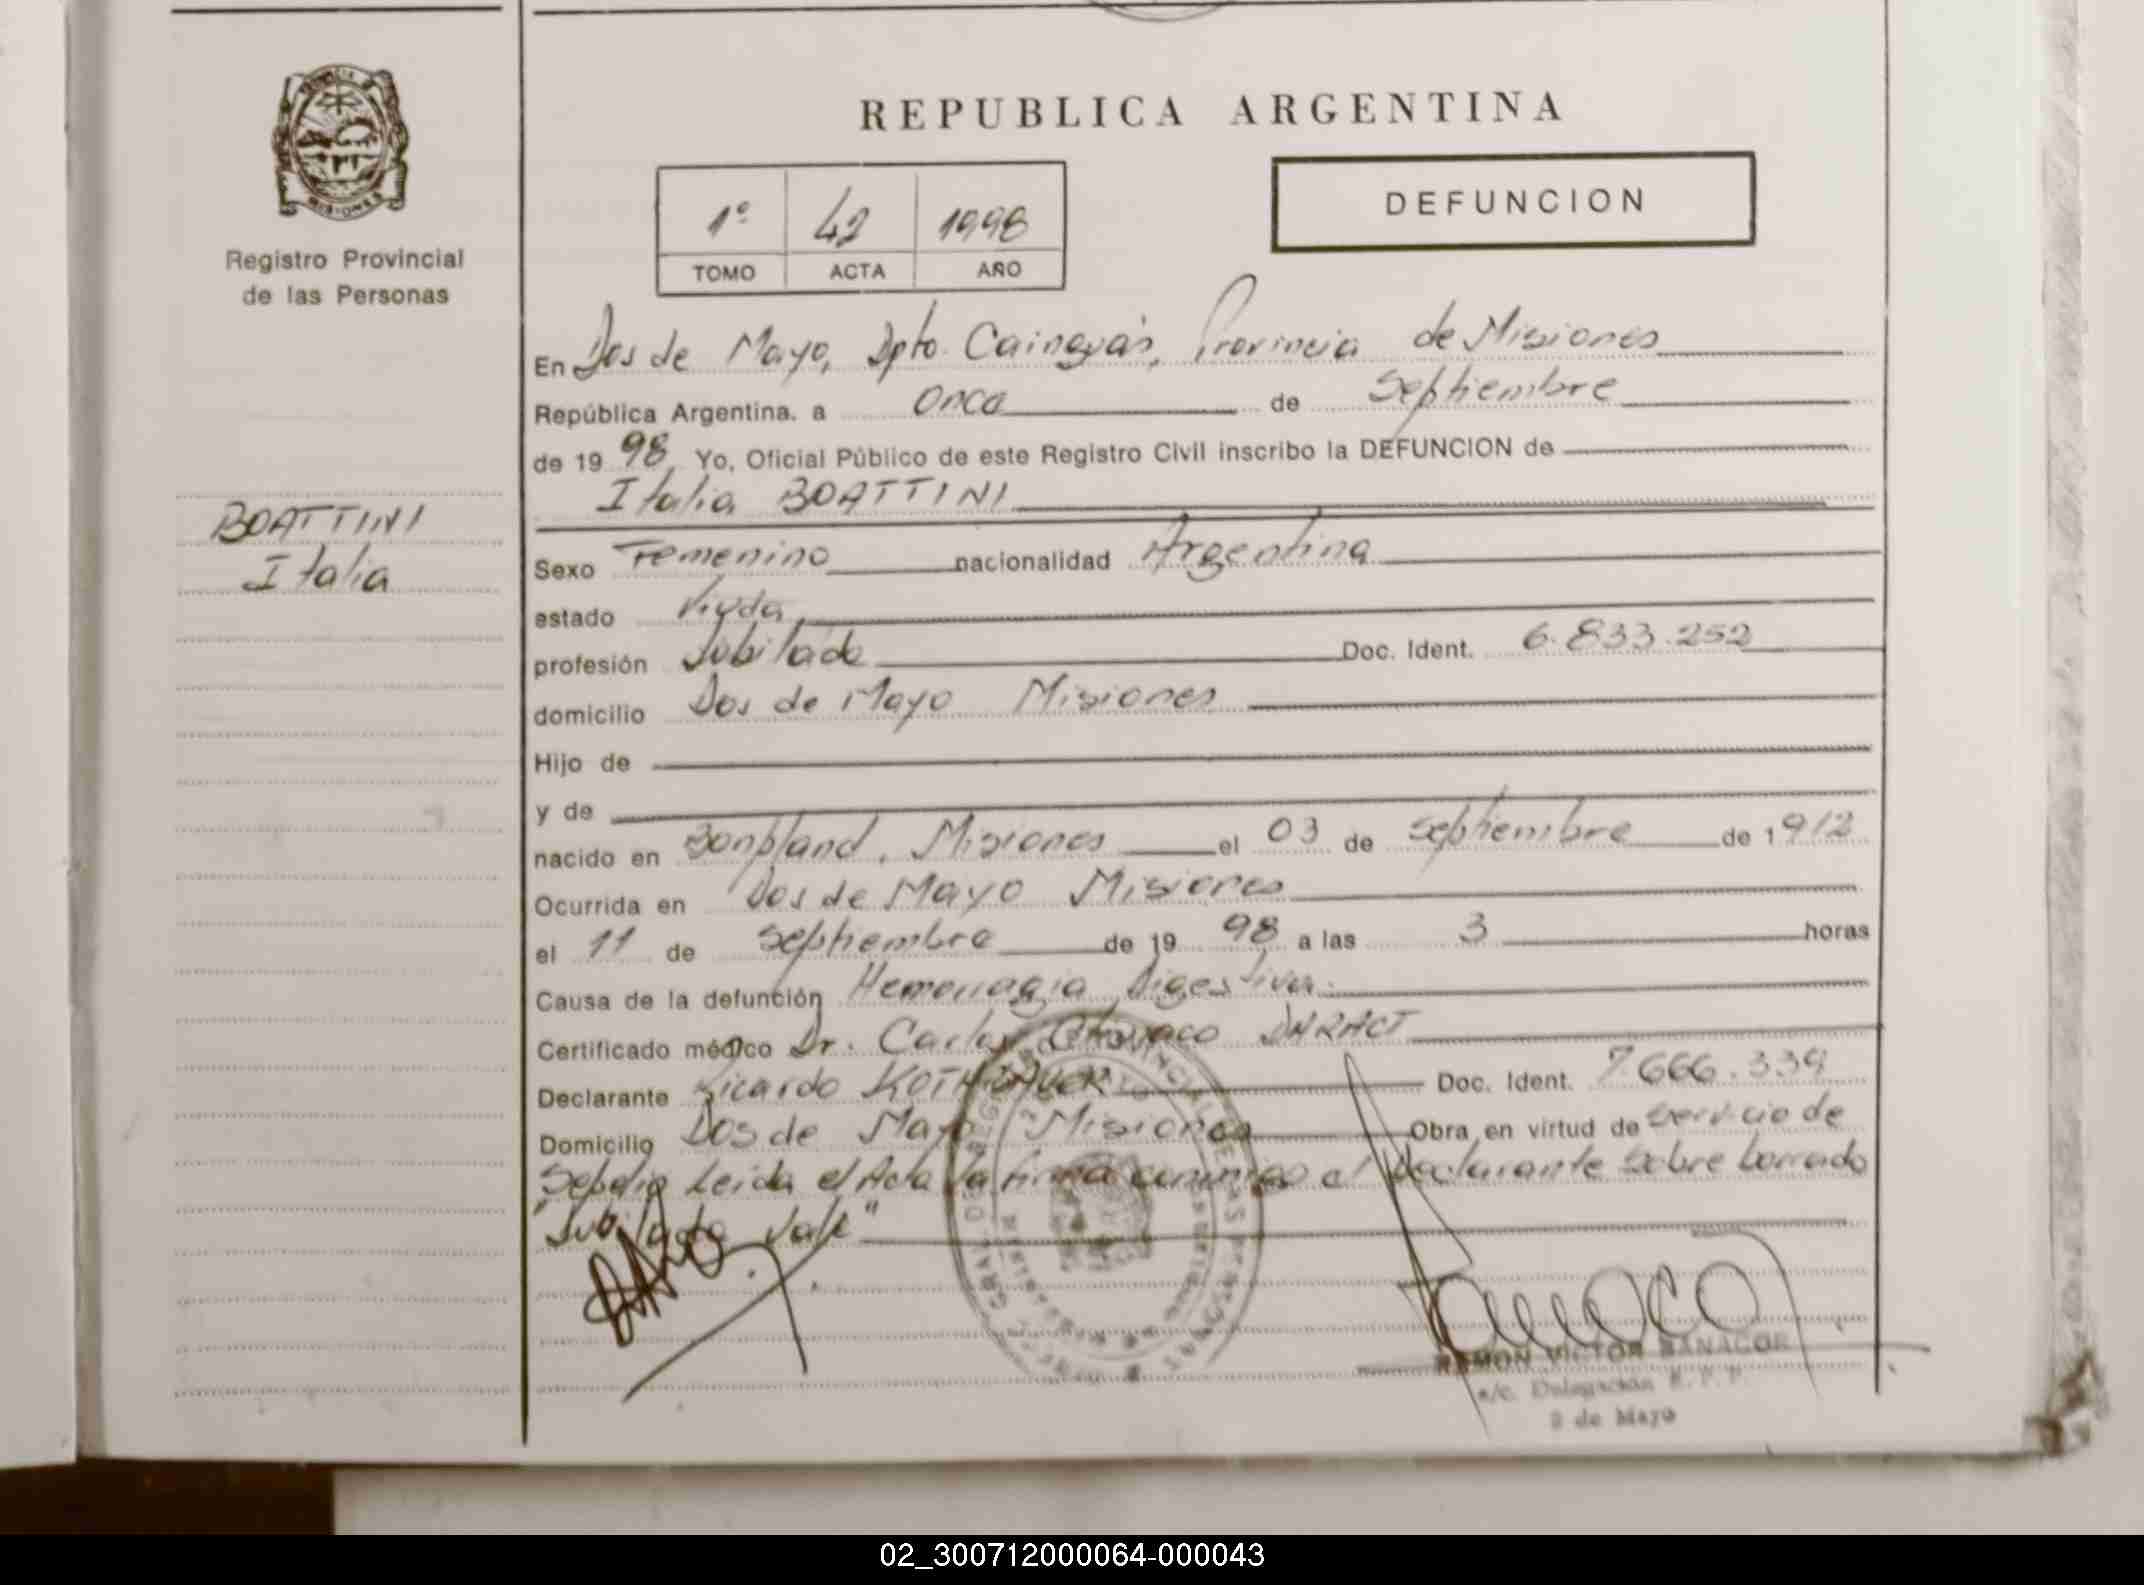 REPUBLICA ARGENTINA
DEFUNCION
1º 42 1998
TOMO ACTA AÑO
MISIONES
Registro Provincial
de las Personas
BOATTINI
Italia
En Dos de Mayo, Dpto. Cainguás, Provincia de Misiones
República Argentina. a Once de Septiembre
de 19 98, Yo, Oficial Público de este Registro Civil inscribo la DEFUNCION de
Italia BOATTINI
Sexo Femenino nacionalidad Argentina
estado Viuda
profesión Jubilada Doc. Ident. 6.833.252
domicilio Dos de Mayo Misiones
Hijo de
y de
nacido en Bonpland, Misiones el 03 de Septiembre de 1912
Ocurrida en Dos de Mayo Misiones
el 11 de Septiembre de 19 98 a las 3 horas
Causa de la defunción Hemorragia Digestiva.
Certificado médico Dr. Carlos
Declarante Ricardo Doc. Ident. 7.666.339
Domicilio Dos de Mayo Misiones Obra en virtud de Servicio de
Sepelio Leida el Acta la firma conmigo el Declarante Sobre borrado
"Jubilada Vale"
RAMON VICTOR BANACOR
a/c. Delegación R. P. P.
2 de Mayo
02_300712000064-000043